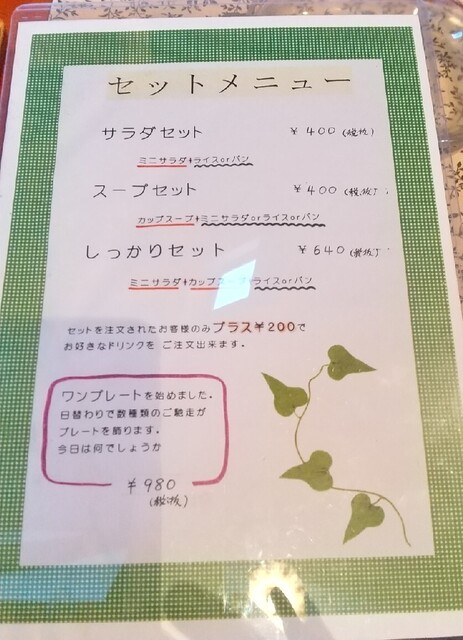 セットメニュー
サラダセット ¥400(税抜)
ミニサラダ+ライスorパン
スープセット ¥400(税抜)
カップスープ+ミニサラダorライスorパン
しっかりセット ¥640(税抜)
ミニサラダ+カップスープ+ライスorパン
セットを注文されたお客様のみプラス¥200で
お好きなドリンクを ご注文出来ます。
ワンプレートを始めました。
日替わりで数種類のご馳走が
プレートを飾ります。
今日は何でしょうか
¥980
(税抜)